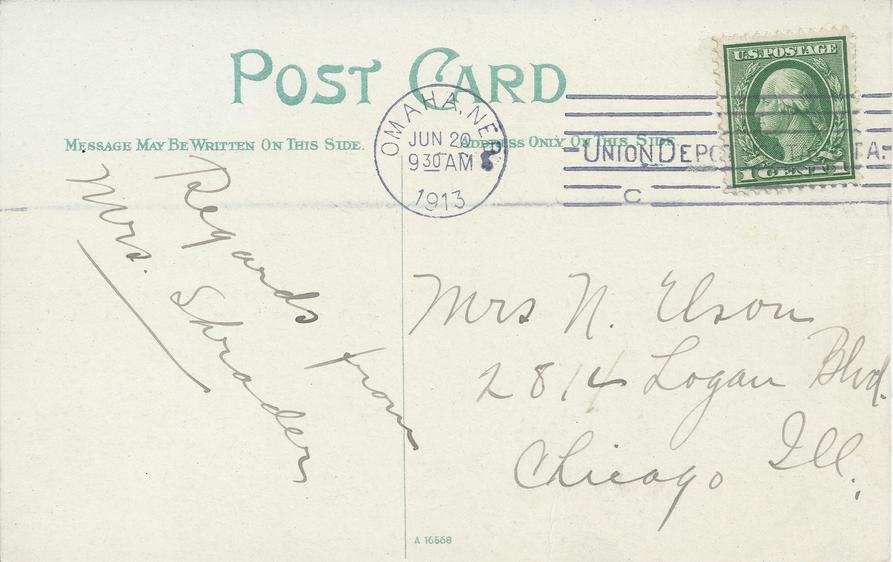 POST CARD
MESSAGE MAY BE WRITTEN ON THIS SIDE.
ADDRESS ONLY ON THIS SIDE
OMAHA, NEB.
JUN 20
9 30 AM
1913
UNION DEPO
TA.
C
U.S. POSTAGE
1 CENT 1
Regards from
Mrs. Shrader
Mrs N. Elson
2814 Logan Blvd.
Chicago Ill.
A 16568